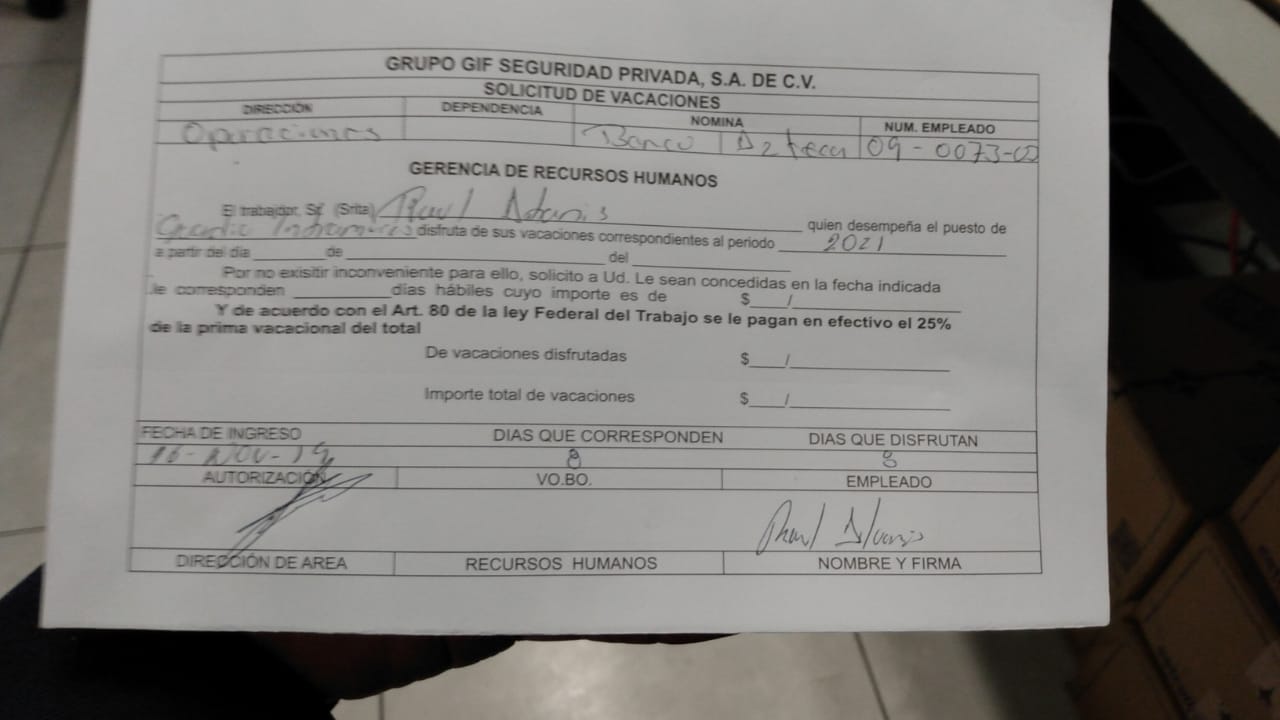 GRUPO GIF SEGURIDAD PRIVADA, S.A. DE C.V.
SOLICITUD DE VACACIONES
DIRECCIÓN DEPENDENCIA NOMINA NUM. EMPLEADO
Operaciones Banco Azteca 09-0073-00
GERENCIA DE RECURSOS HUMANOS
El trabajdor, Sr. (Srita) Raul quien desempeña el puesto de
Guardia disfruta de sus vacaciones correspondientes al periodo 2021
a partir del día de del
Por no exisitir inconveniente para ello, solicito a Ud. Le sean concedidas en la fecha indicada
.le corresponden días hábiles cuyo importe es de $ /
Y de acuerdo con el Art. 80 de la ley Federal del Trabajo se le pagan en efectivo el 25%
de la prima vacacional del total
De vacaciones disfrutadas $ /
Importe total de vacaciones $ /
FECHA DE INGRESO DIAS QUE CORRESPONDEN DIAS QUE DISFRUTAN
16-NOV-19 8 8
AUTORIZACIÓN VO.BO. EMPLEADO
Raul
DIRECCIÓN DE AREA RECURSOS HUMANOS NOMBRE Y FIRMA